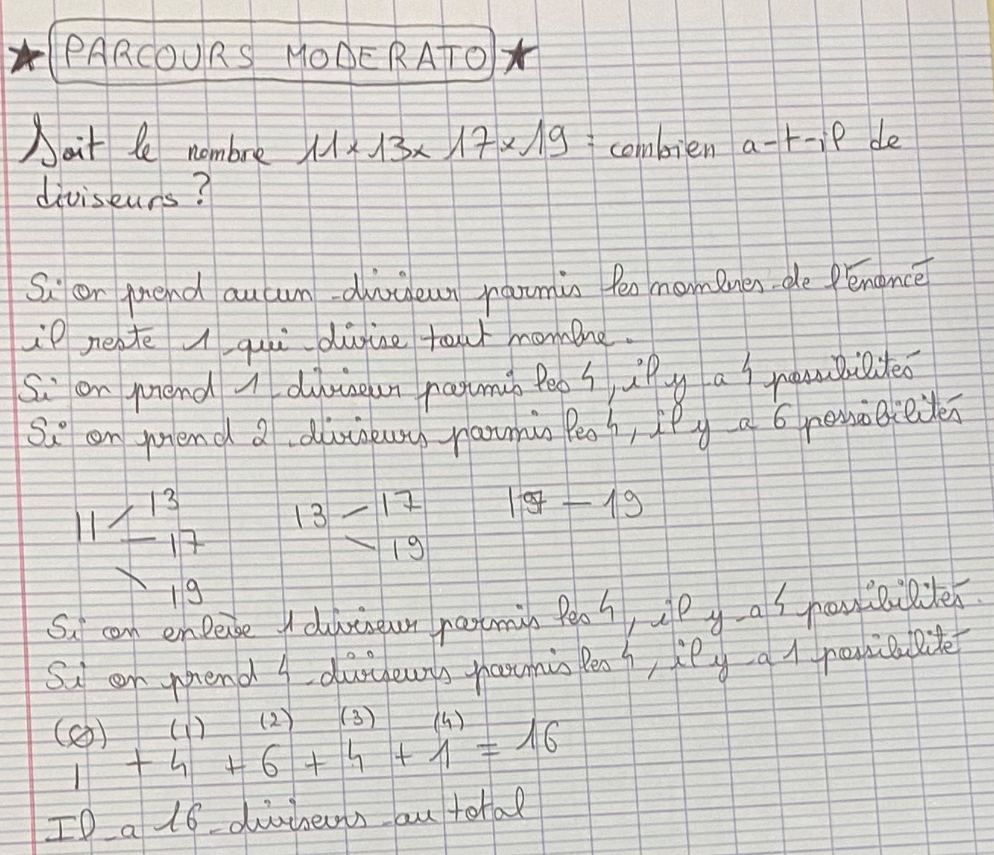 ★ PARCOURS MODERATO ★
Soit le nombre 11 × 13 × 17 × 19 : combien a-t-il de
diviseurs ?
Si on prend aucun diviseur parmis les nombres de l'énoncé
il reste 1 qui divise tout nombre.
Si on prend 1 diviseur parmis les 4, il y a 4 possibilités
Si on prend 2 diviseurs parmis les 4, il y a 6 possibilités
11 13 17 19 13 17 19 17 — 19
Si on enleve 1 diviseur parmis les 4, il y a 4 possibilités.
Si on prend 4 diviseurs parmis les 4, il y a 1 possibilité
(0) (1) (2) (3) (4)
1 + 4 + 6 + 4 + 1 = 16
Il a 16 diviseurs au total